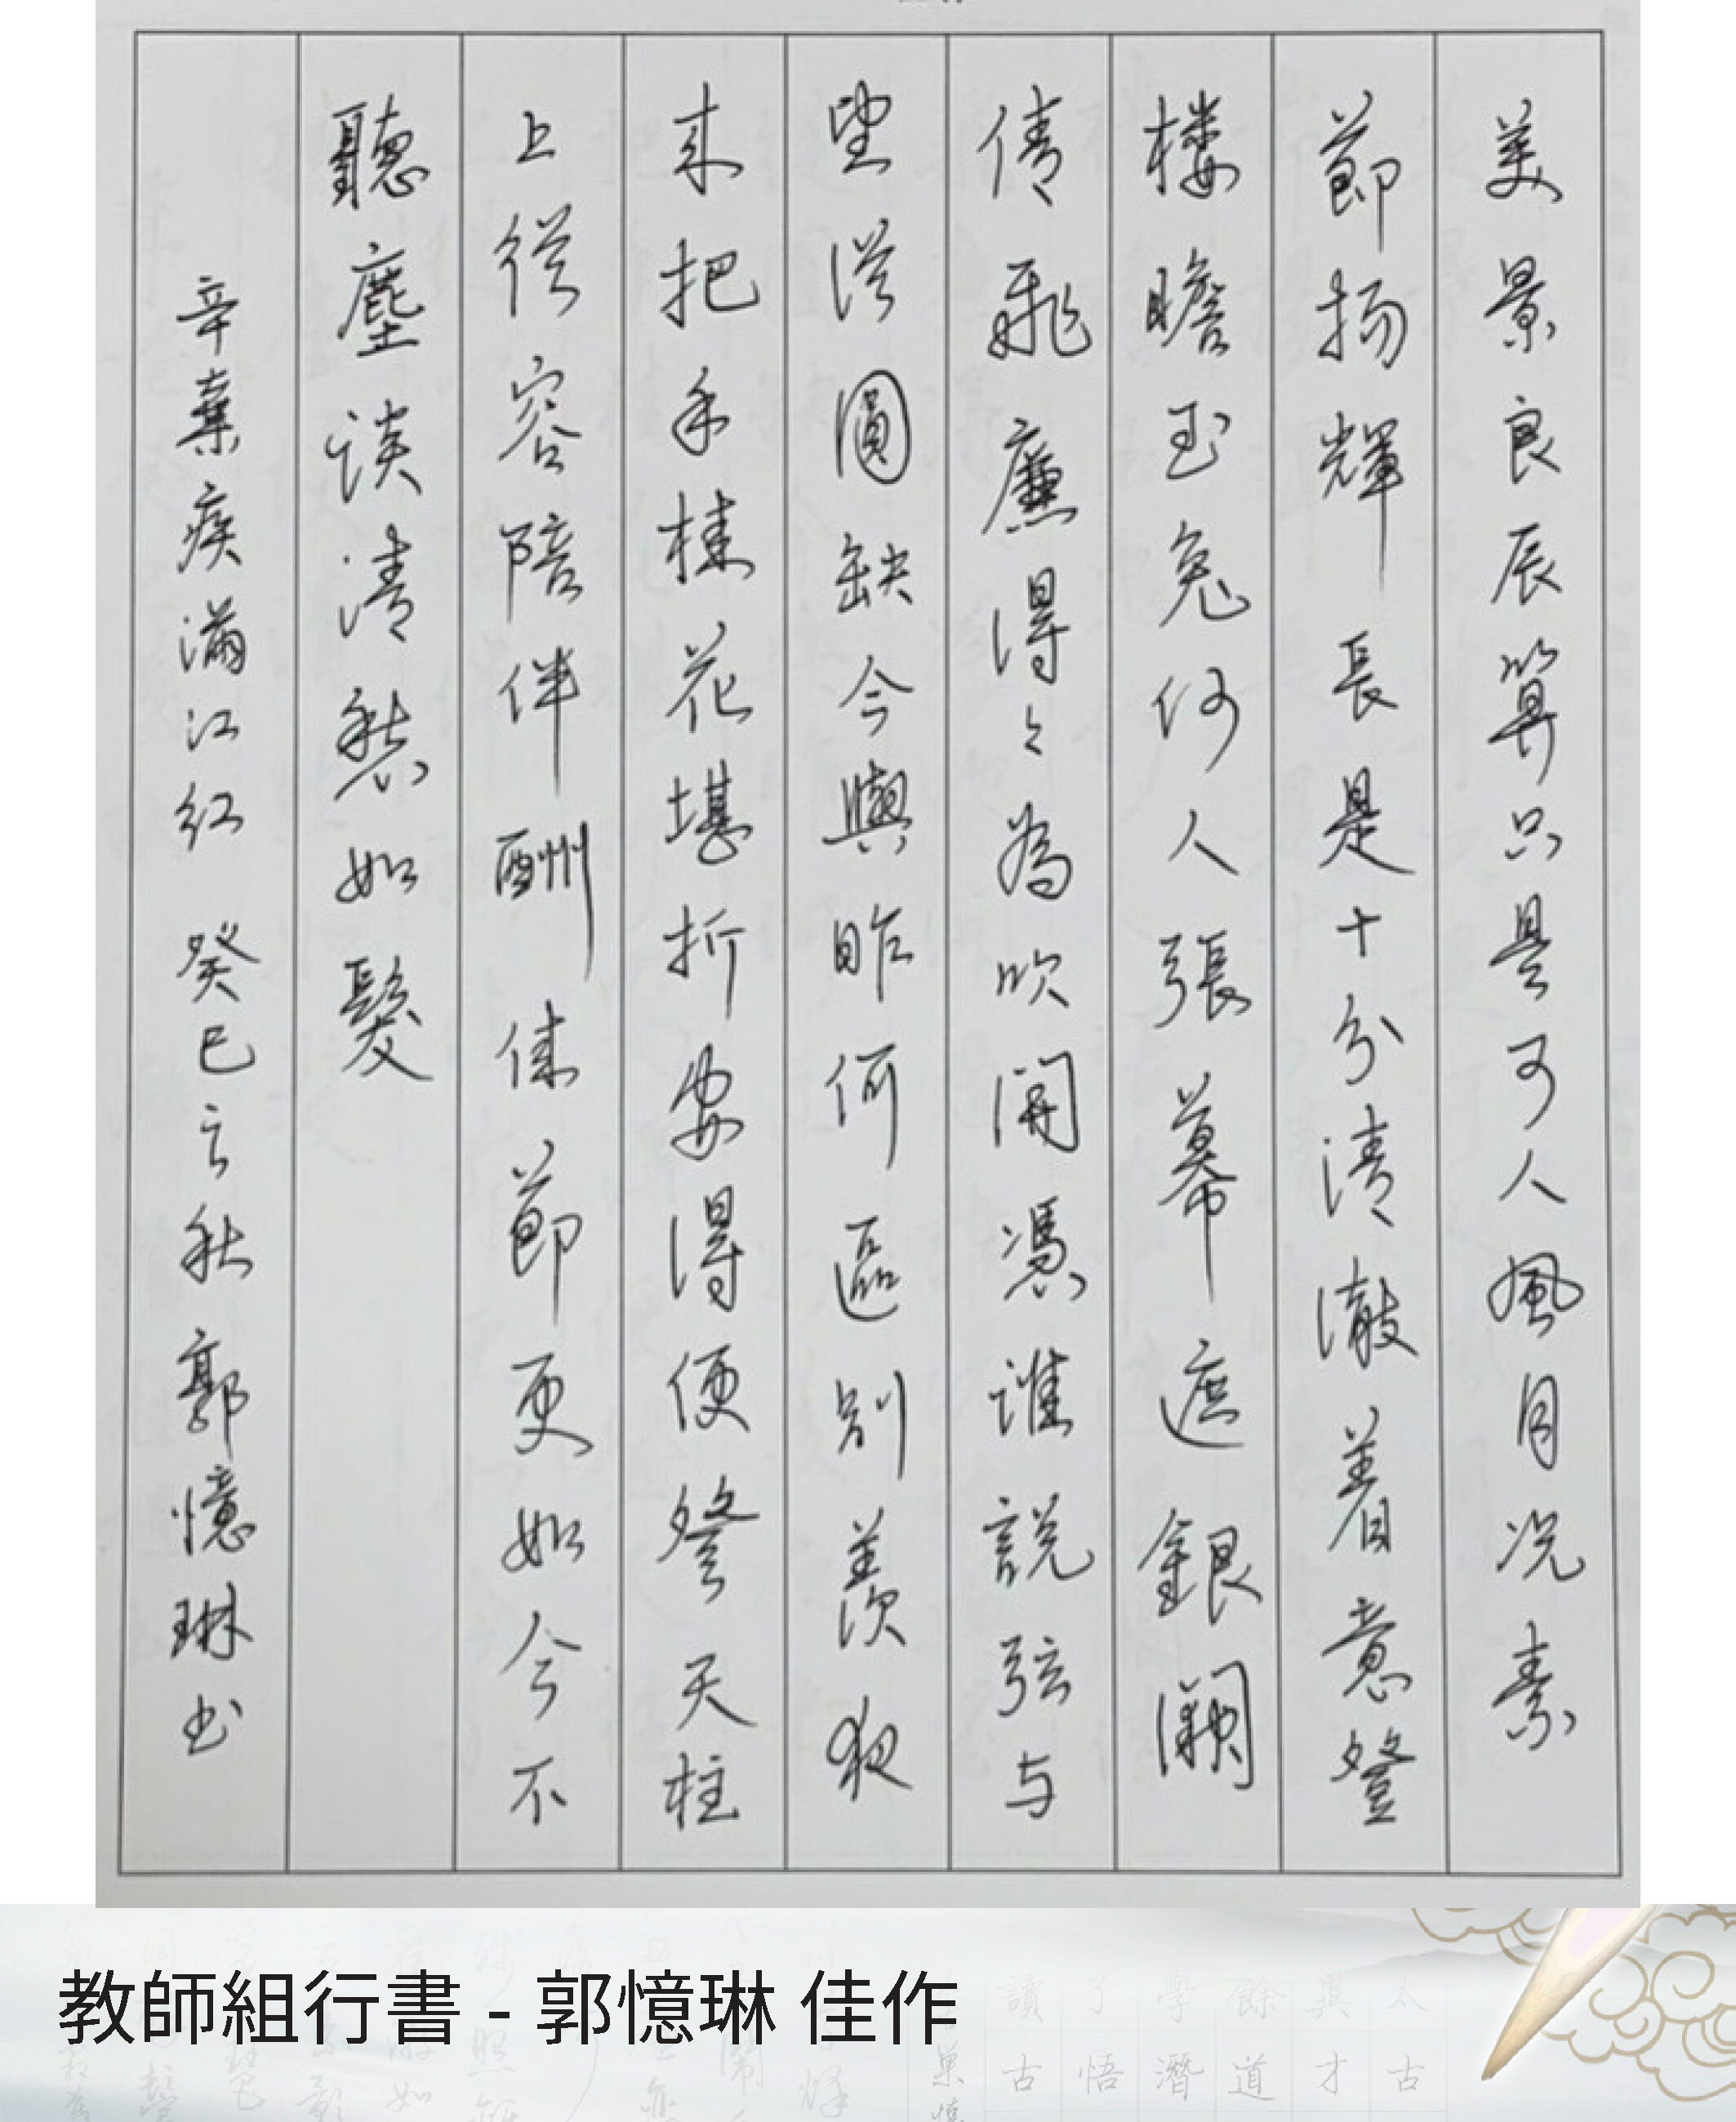 美景良辰算只是可人風月况素
節扬輝 長是十分清澈着意登
楼瞻玉兔何人張幕遮銀闕
倩飛廉得々為吹開憑誰説弦与
望從圓缺今與昨何區别羨夜
来把手桂花堪折安得便登天柱
上從容陪伴酬佳節更如今不
聽塵談清愁如髮
辛棄疾滿江红 癸巳之秋 郭憶琳书
教師組行書 - 郭憶琳 佳作